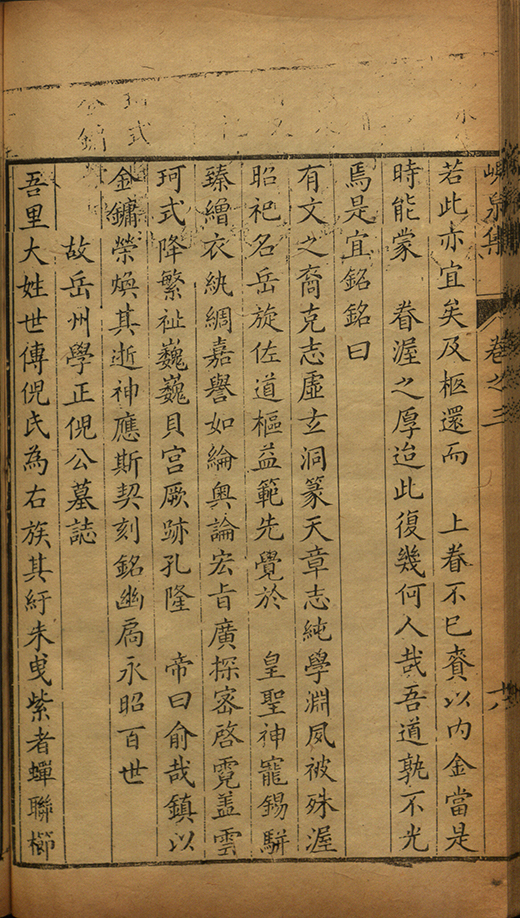 峴泉集 卷之三
若此亦宜矣及柩還而　上眷不已賚以内金當是
時能蒙　眷渥之厚迨此復幾何人哉吾道孰不光
焉是宜銘銘曰
有文之裔克志虛玄洞篆天章志純學淵夙被殊渥
昭祀名岳旋佐道樞益範先覺於　皇聖神寵錫駢
臻繒衣紈綢嘉譽如綸奥論宏旨廣探宻啓霓盖雲
珂式降繁祉巍巍貝宫厥跡孔隆　帝曰俞哉鎮以
金鏞榮煥其逝神應斯契刻銘幽扃永昭百世
故岳州學正倪公墓誌
吾里大姓世傳倪氏為右族其紆朱曵紫者蟬聯櫛